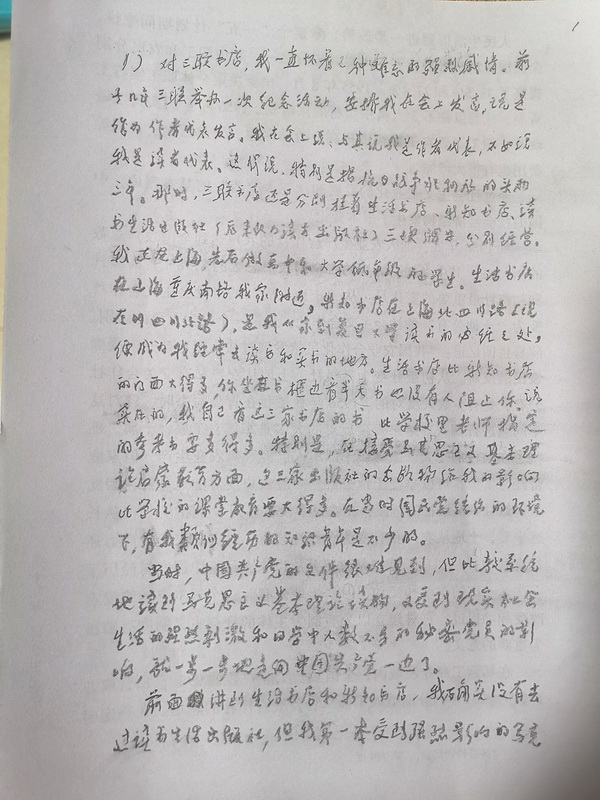 1
1） 对三联书店，我一直怀着一种难忘的强烈感情。前
子年三联举办一次纪念活动，安排我在会上发言，说是
作为作者代表发言。我在会上说，与其说我是作者代表，不如说
我是读者代表。这样说，特别是指抗日战争胜利后的头两
三年。那时，三联书店还是分别挂着生活书店、新知书店、读
书生活出版社（后来改为读书出版社）三块牌子，分别经营。
我正在上海，先后做高中和大学低年级的学生。生活书店
在上海重庆南路我家附近，新知书店在上海北四川路（现
在的四川北路），是我从家到复旦大学读书的必经之处，
便成为我经常去读书和买书的地方。生活书店比新知书店
的门面大得多，你坐在书柜边看半天书也没有人阻止你。说
实在的，我自己看这三家书店的书 比学校里老师指定
的参考书要多得多。特别是，在接受马克思主义基本理
论启蒙教育方面，这三家出版社的出版物给我的影响
比学校的课堂教育要大得多。在当时国民党统治的环境
下，有我类似经历的知识青年是不少的。
当时，中国共产党的文件很难见到，但比较系统
地读到马克思主义基本理论读物，又受到现实社会
生活的强烈刺激和同学中人数不多的秘密党员的影
响，就一步一步地走向中国共产党一边了。
前面讲到生活书店和新知书店，我确实没有去
过读书生活出版社，但我第一本受到强烈影响的马克